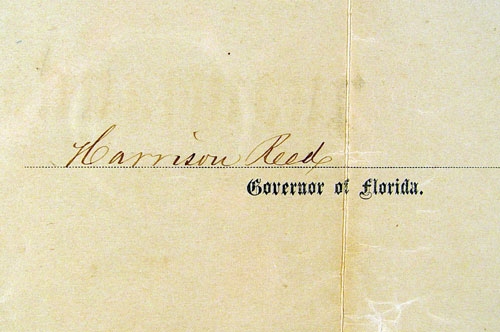 Harrison Reed
Governor of Florida.